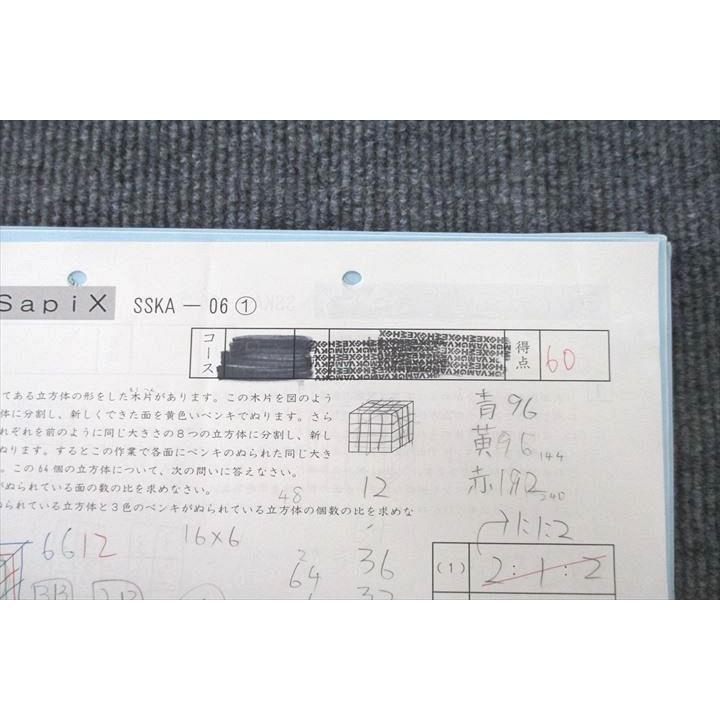 SapiX SSKA — 06 ①
コース
得点 60
てある立方体の形をした木片があります。この木片を図のよう
体に分割し、新しくできた面を黄色いペンキでぬります。さら
れぞれを前のように同じ大きさの8つの立方体に分割し、新し
ぬります。するとこの作業で各面にペンキのぬられた同じ大き
。この64個の立方体について、次の問いに答えなさい。
がぬられている面の数の比を求めなさい。
られている立方体と3色のペンキがぬられている立方体の個数の比を求めな
青 96
黄 96 144
赤 192 240
48
12
→1:1:2
6612
16×6
64
36
(1) 2:1:2